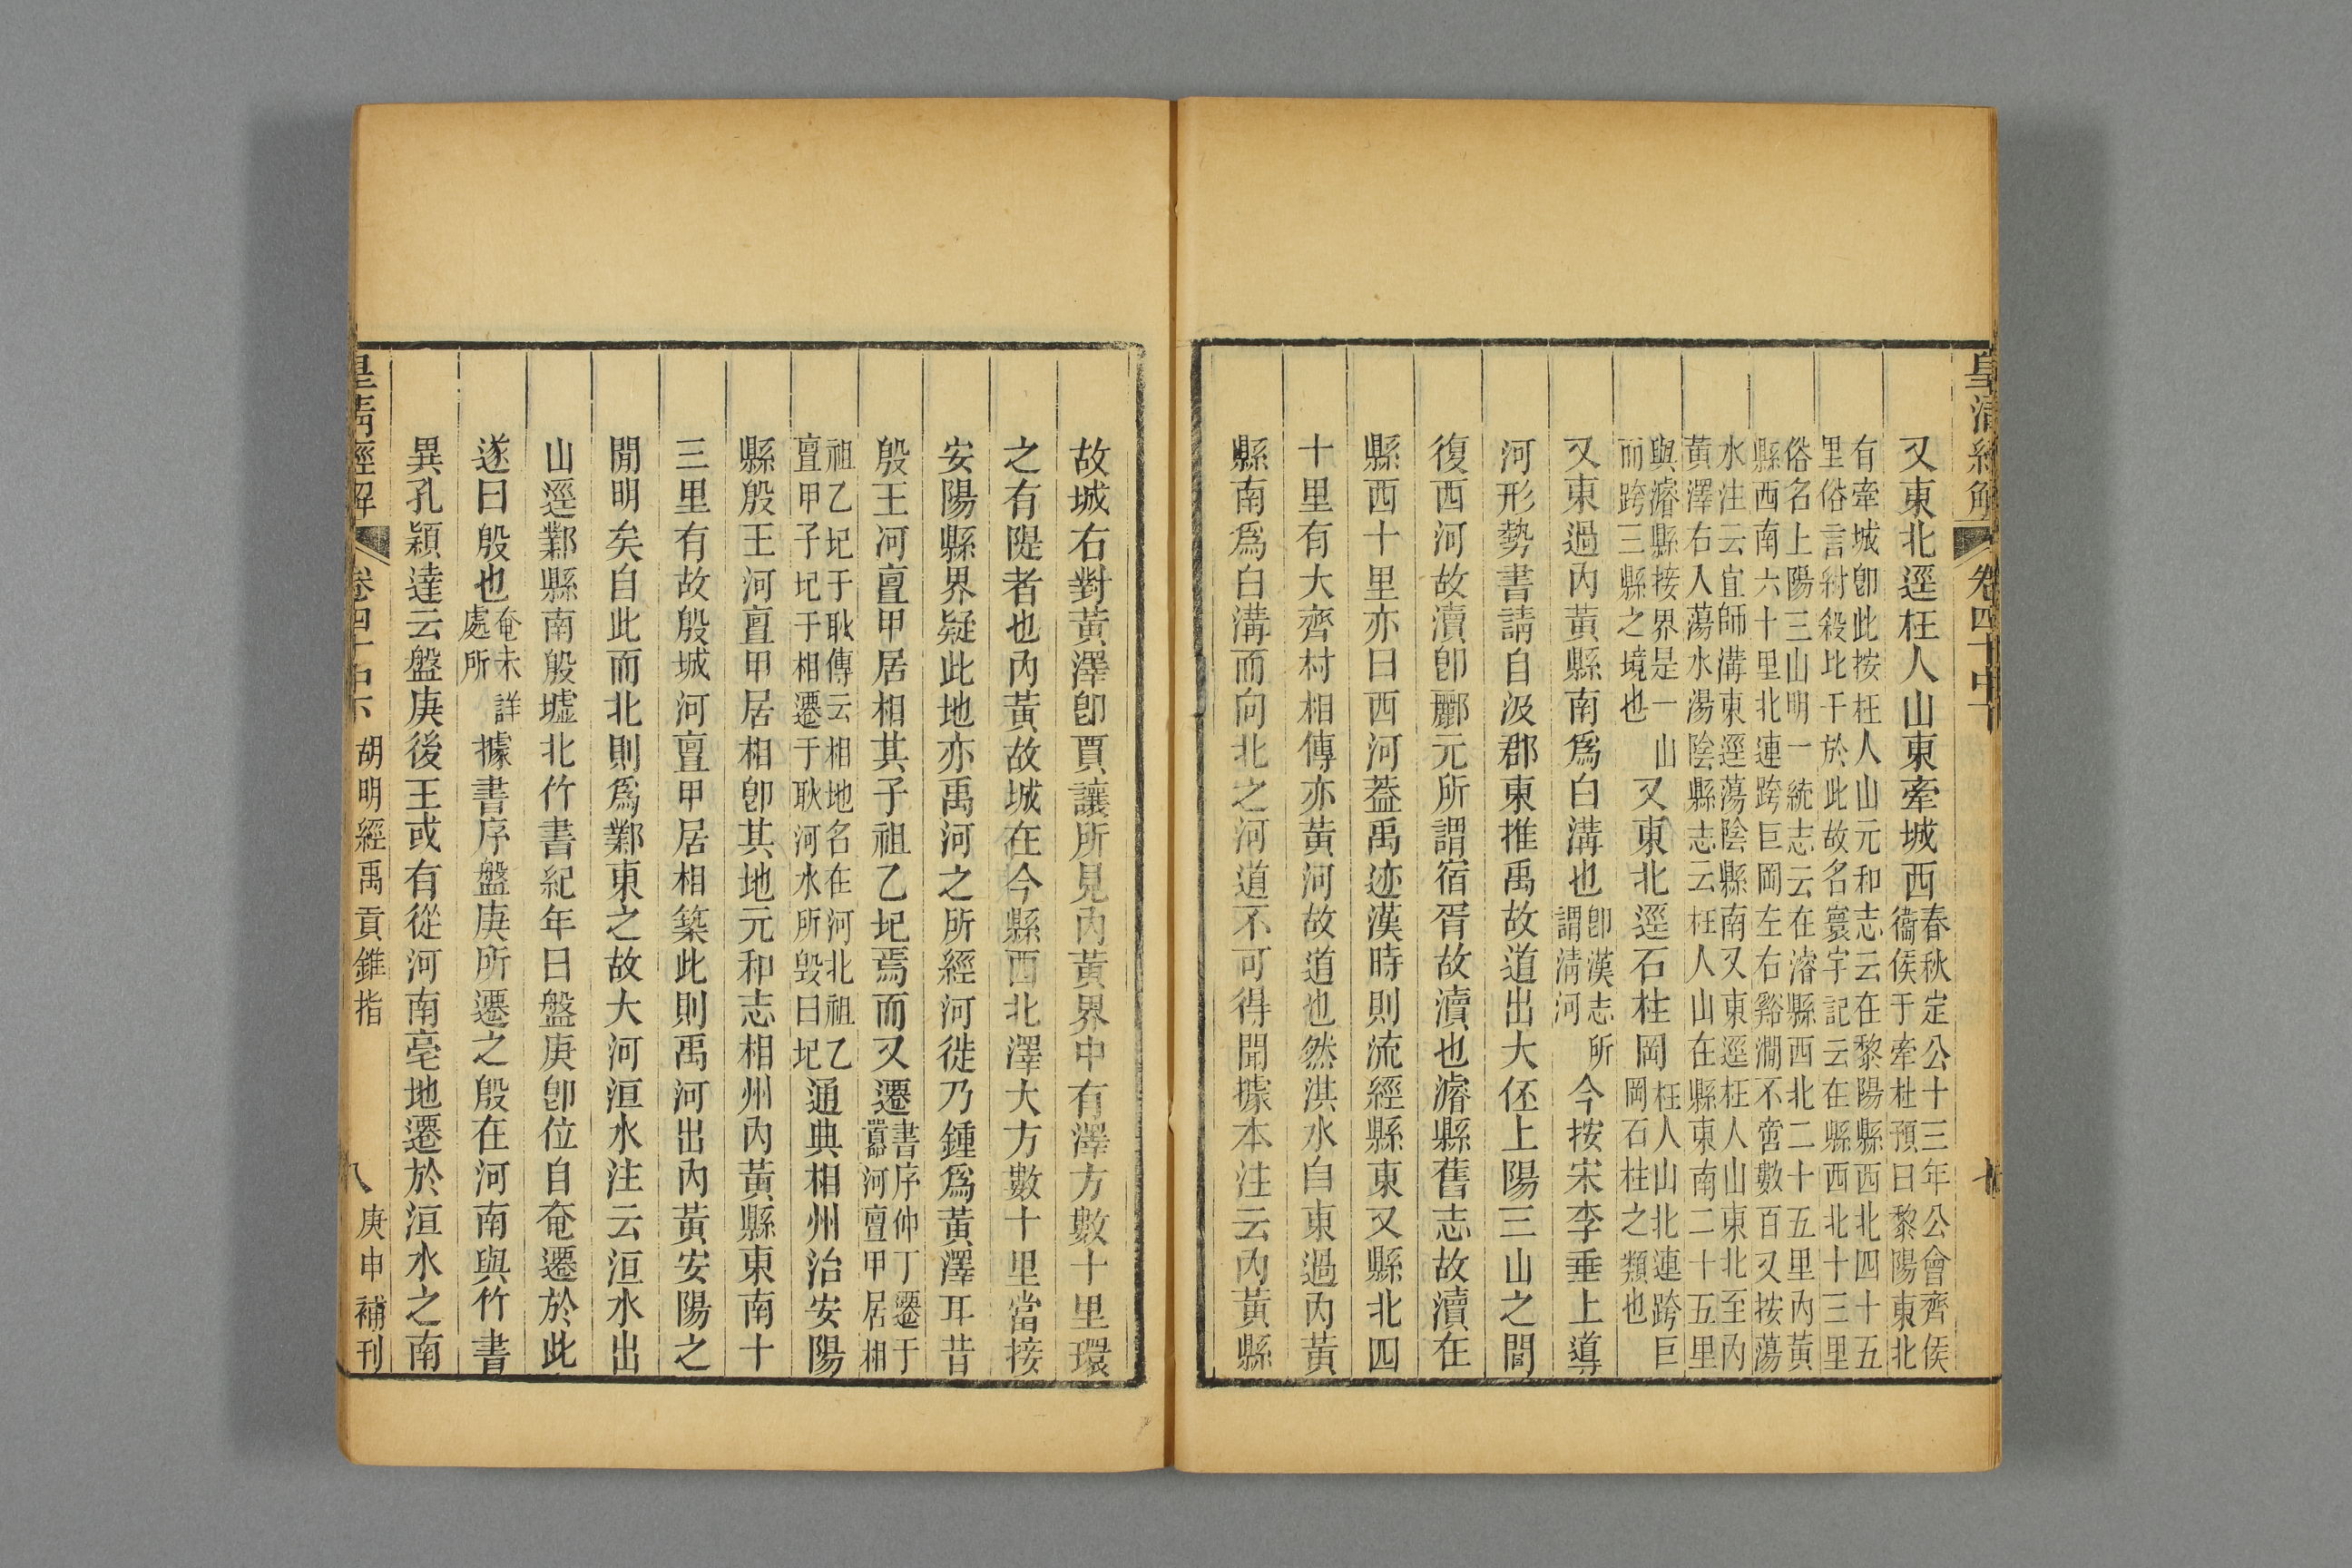 皇清經解 卷四十中下
又東北逕枉人山東牽城西春秋定公十三年公會齊侯
衞侯于牽杜預曰黎陽東北
有牽城卽此按枉人山元和志云在黎陽縣西北四十五
里俗言紂殺比干於此故名寰宇記云在縣西北十三里
俗名上陽三山明一統志云在濬縣西北二十五里內黃
縣西南六十里北連跨巨岡左右谿澗不啻數百又按蕩
水注云宜師溝東逕蕩陰縣南又東逕枉人山東北至內
黃澤右入蕩水湯陰縣志云枉人山在縣東南二十五里
與濬縣接界是一山
而跨三縣之境也
又東北逕石柱岡枉人山北連跨巨
岡石柱之類也
又東過內黃縣南爲白溝也卽漢志所
謂淸河
今按宋李垂上導
河形勢書請自汲郡東推禹故道出大伾上陽三山之間
復西河故瀆卽酈元所謂宿胥故瀆也濬縣舊志故瀆在
縣西十里亦曰西河葢禹迹漢時則流經縣東又縣北四
十里有大齊村相傳亦黃河故道也然淇水自東過內黃
縣南爲白溝而向北之河道不可得聞據本注云內黃縣
故城右對黃澤卽賈讓所見內黃界中有澤方數十里環
之有隄者也內黃故城在今縣西北澤大方數十里當接
安陽縣界疑此地亦禹河之所經河徙乃鍾爲黃澤耳昔
殷王河亶甲居相其子祖乙圮焉而又遷書序仲丁遷于
囂河亶甲居相
祖乙圮于耿傳云相地名在河北祖乙
亶甲子圮于相遷于耿河水所毀曰圮
通典相州治安陽
縣殷王河亶甲居相卽其地元和志相州內黃縣東南十
三里有故殷城河亶甲居相築此則禹河出內黃安陽之
閒明矣自此而北則爲鄴東之故大河洹水注云洹水出
山逕鄴縣南殷墟北竹書紀年曰盤庚卽位自奄遷於此
遂曰殷也奄未詳
處所
據書序盤庚所遷之殷在河南與竹書
異孔穎達云盤庚後王或有從河南亳地遷於洹水之南
皇清經解 胡明經禹貢錐指 八 庚申補刊